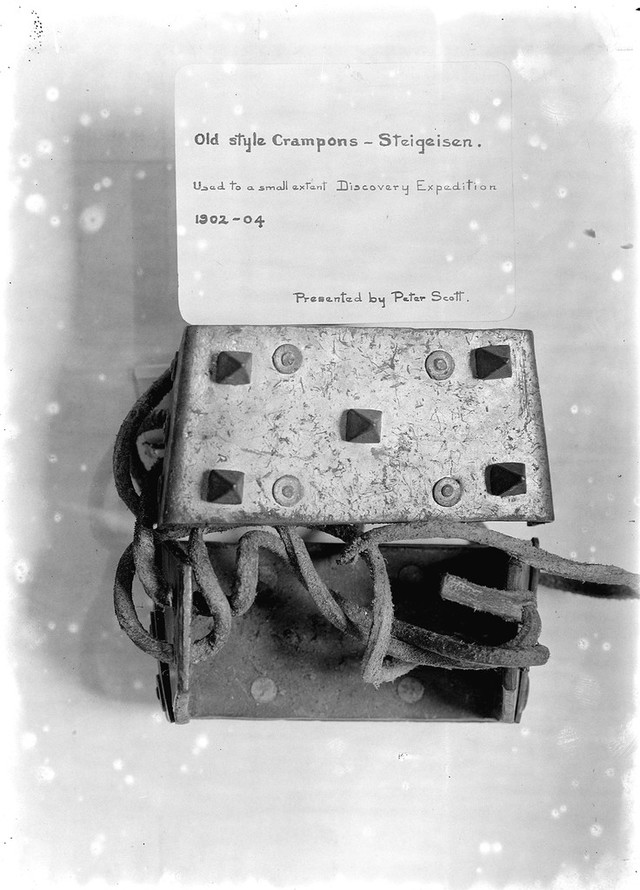 Old style Crampons – Steigeisen.
Used to a small extent Discovery Expedition
1902-04
Presented by Peter Scott.